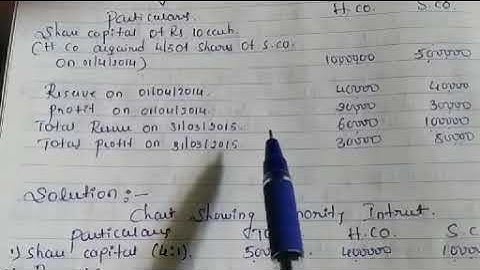 Particulars. H.CO. S.CO.
Share capital of Rs 10 each.
(H Co acquired 4/5 of shares of S.CO.
on 01/4/2014) 1000000 500000
Reserve on 01/04/2014. 40000 40000
Profit on 01/04/2014. 20000 30000
Total Reserve on 31/03/2015. 60000 100000
Total profit on 31/03/2015 30000 80000
Solution:-
Chart Showing Minority Intrest.
Particulars H.CO. S.C
1) Share capital (4:1). 400000